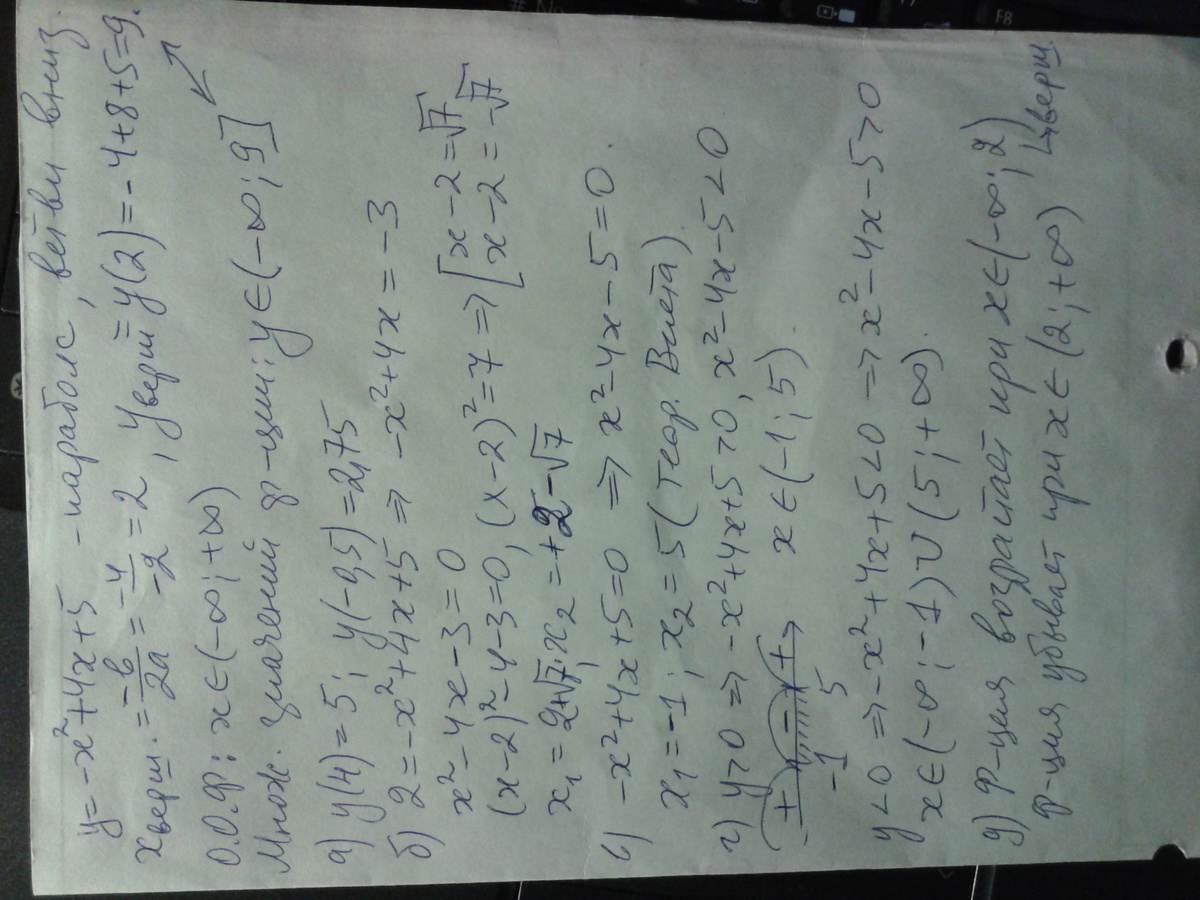 y = -x² + 4x + 5 - парабола, ветви вниз.
xверш. = -b/2a = -4/-2 = 2, yверш = y(2) = -4+8+5=9.
О.О.Ф: x∈(-∞;+∞)
Множ. значений ф-ции: y∈(-∞;9]
а) y(4) = 5; y(-0,5) = 2,75
б) 2 = -x²+4x+5 ⇒ -x²+4x = -3
x²-4x-3=0
(x-2)²-4-3=0, (x-2)²=7 ⇒ [x-2=√7
x-2=-√7
x₁ = 2+√7, x₂ = +2-√7
в) -x²+4x+5=0 ⇒ x²-4x-5=0.
x₁=-1; x₂=5 (теор. Виета).
г) y>0 ⇒ -x²+4x+5>0, x²-4x-5<0
+ - + x∈(-1;5).
-1 5
y<0 ⇒ -x²+4x+5<0 ⇒ x²-4x-5>0
x∈(-∞;-1)∪(5;+∞).
д) Ф-ция возрастает при x∈(-∞;2)
ф-ция убывает при x∈(2;+∞) ↳ верш.
F8